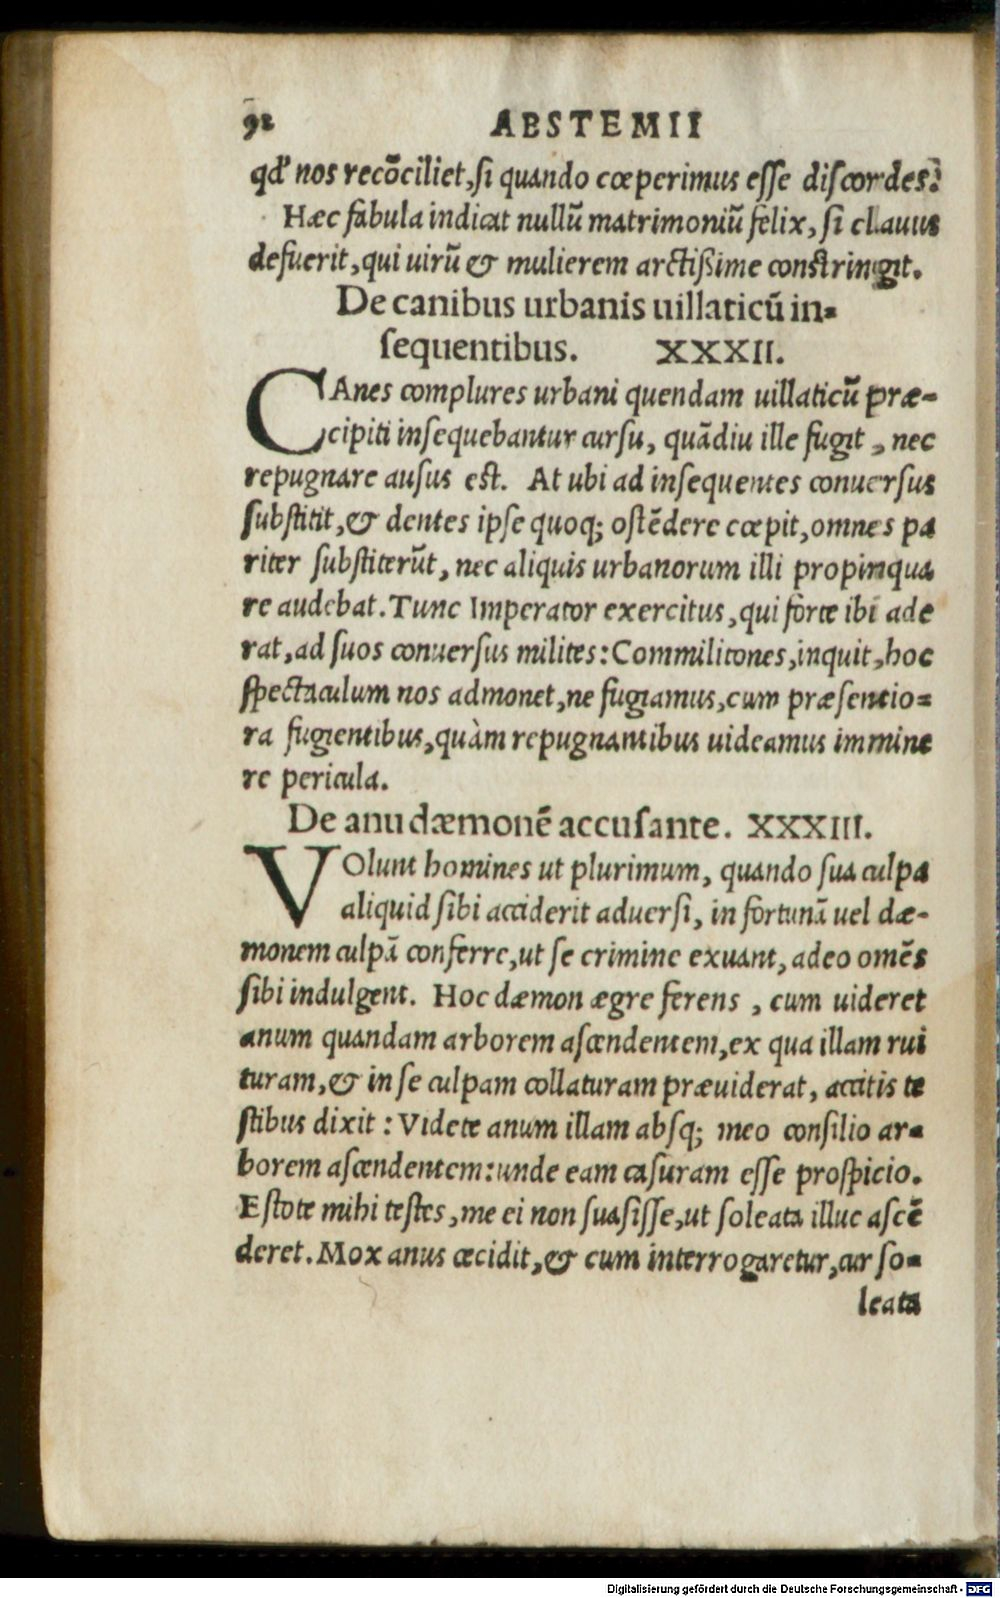 92 ABSTEMII
qd' nos recōciliet, si quando cœperimus esse discordes?
Hæc fabula indicat nullū matrimoniū felix, si clauus
defuerit, qui uirū & mulierem arctißime constringit.
De canibus urbanis uillaticū in-
sequentibus. XXXII.
CAnes complures urbani quendam uillaticū præ-
cipiti insequebantur cursu, quādiu ille fugit, nec
repugnare ausus est. At ubi ad insequentes conuersus
substitit, & dentes ipse quoq; ostēdere cœpit, omnes pa
riter substiterūt, nec aliquis urbanorum illi propinqua
re audebat. Tunc Imperator exercitus, qui forte ibi ade
rat, ad suos conuersus milites: Commilitones, inquit, hoc
spectaculum nos admonet, ne fugiamus, cum præsentio-
ra fugientibus, quàm repugnantibus uideamus immine
re pericula.
De anu dæmonē accusante. XXXIII.
VOlunt homines ut plurimum, quando sua culpa
aliquid sibi acciderit aduersi, in fortunā uel dæ-
monem culpā conferre, ut se crimine exuant, adeo omēs
sibi indulgent. Hoc dæmon ægre ferens, cum uideret
anum quandam arborem ascendentem, ex qua illam rui
turam, & in se culpam collaturam præuiderat, accitis te
stibus dixit: Videte anum illam absq; meo consilio ar-
borem ascendentem: unde eam casuram esse prospicio.
Estote mihi testes, me ei non suasisse, ut soleata illuc ascē
deret. Mox anus cecidit, & cum interrogaretur, cur so-
leata
Digitalisierung gefördert durch die Deutsche Forschungsgemeinschaft - DFG